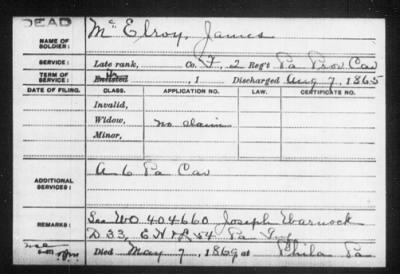 DEAD
NAME OF SOLDIER: McElroy, James
SERVICE: Late rank, Co. F, 2 Reg't Pa Prov. Cav
TERM OF SERVICE: Enlisted , 1 Discharged Aug 7, 1865
DATE OF FILING. CLASS. APPLICATION NO. LAW. CERTIFICATE NO.
Invalid,
Widow, no claim
Minor,
ADDITIONAL SERVICES: A 6 Pa Cav
REMARKS: See WO 404660 Joseph Warnock
D 33, E H & L 54 Pa Inf
Died May 7, 1869 at Phila Pa